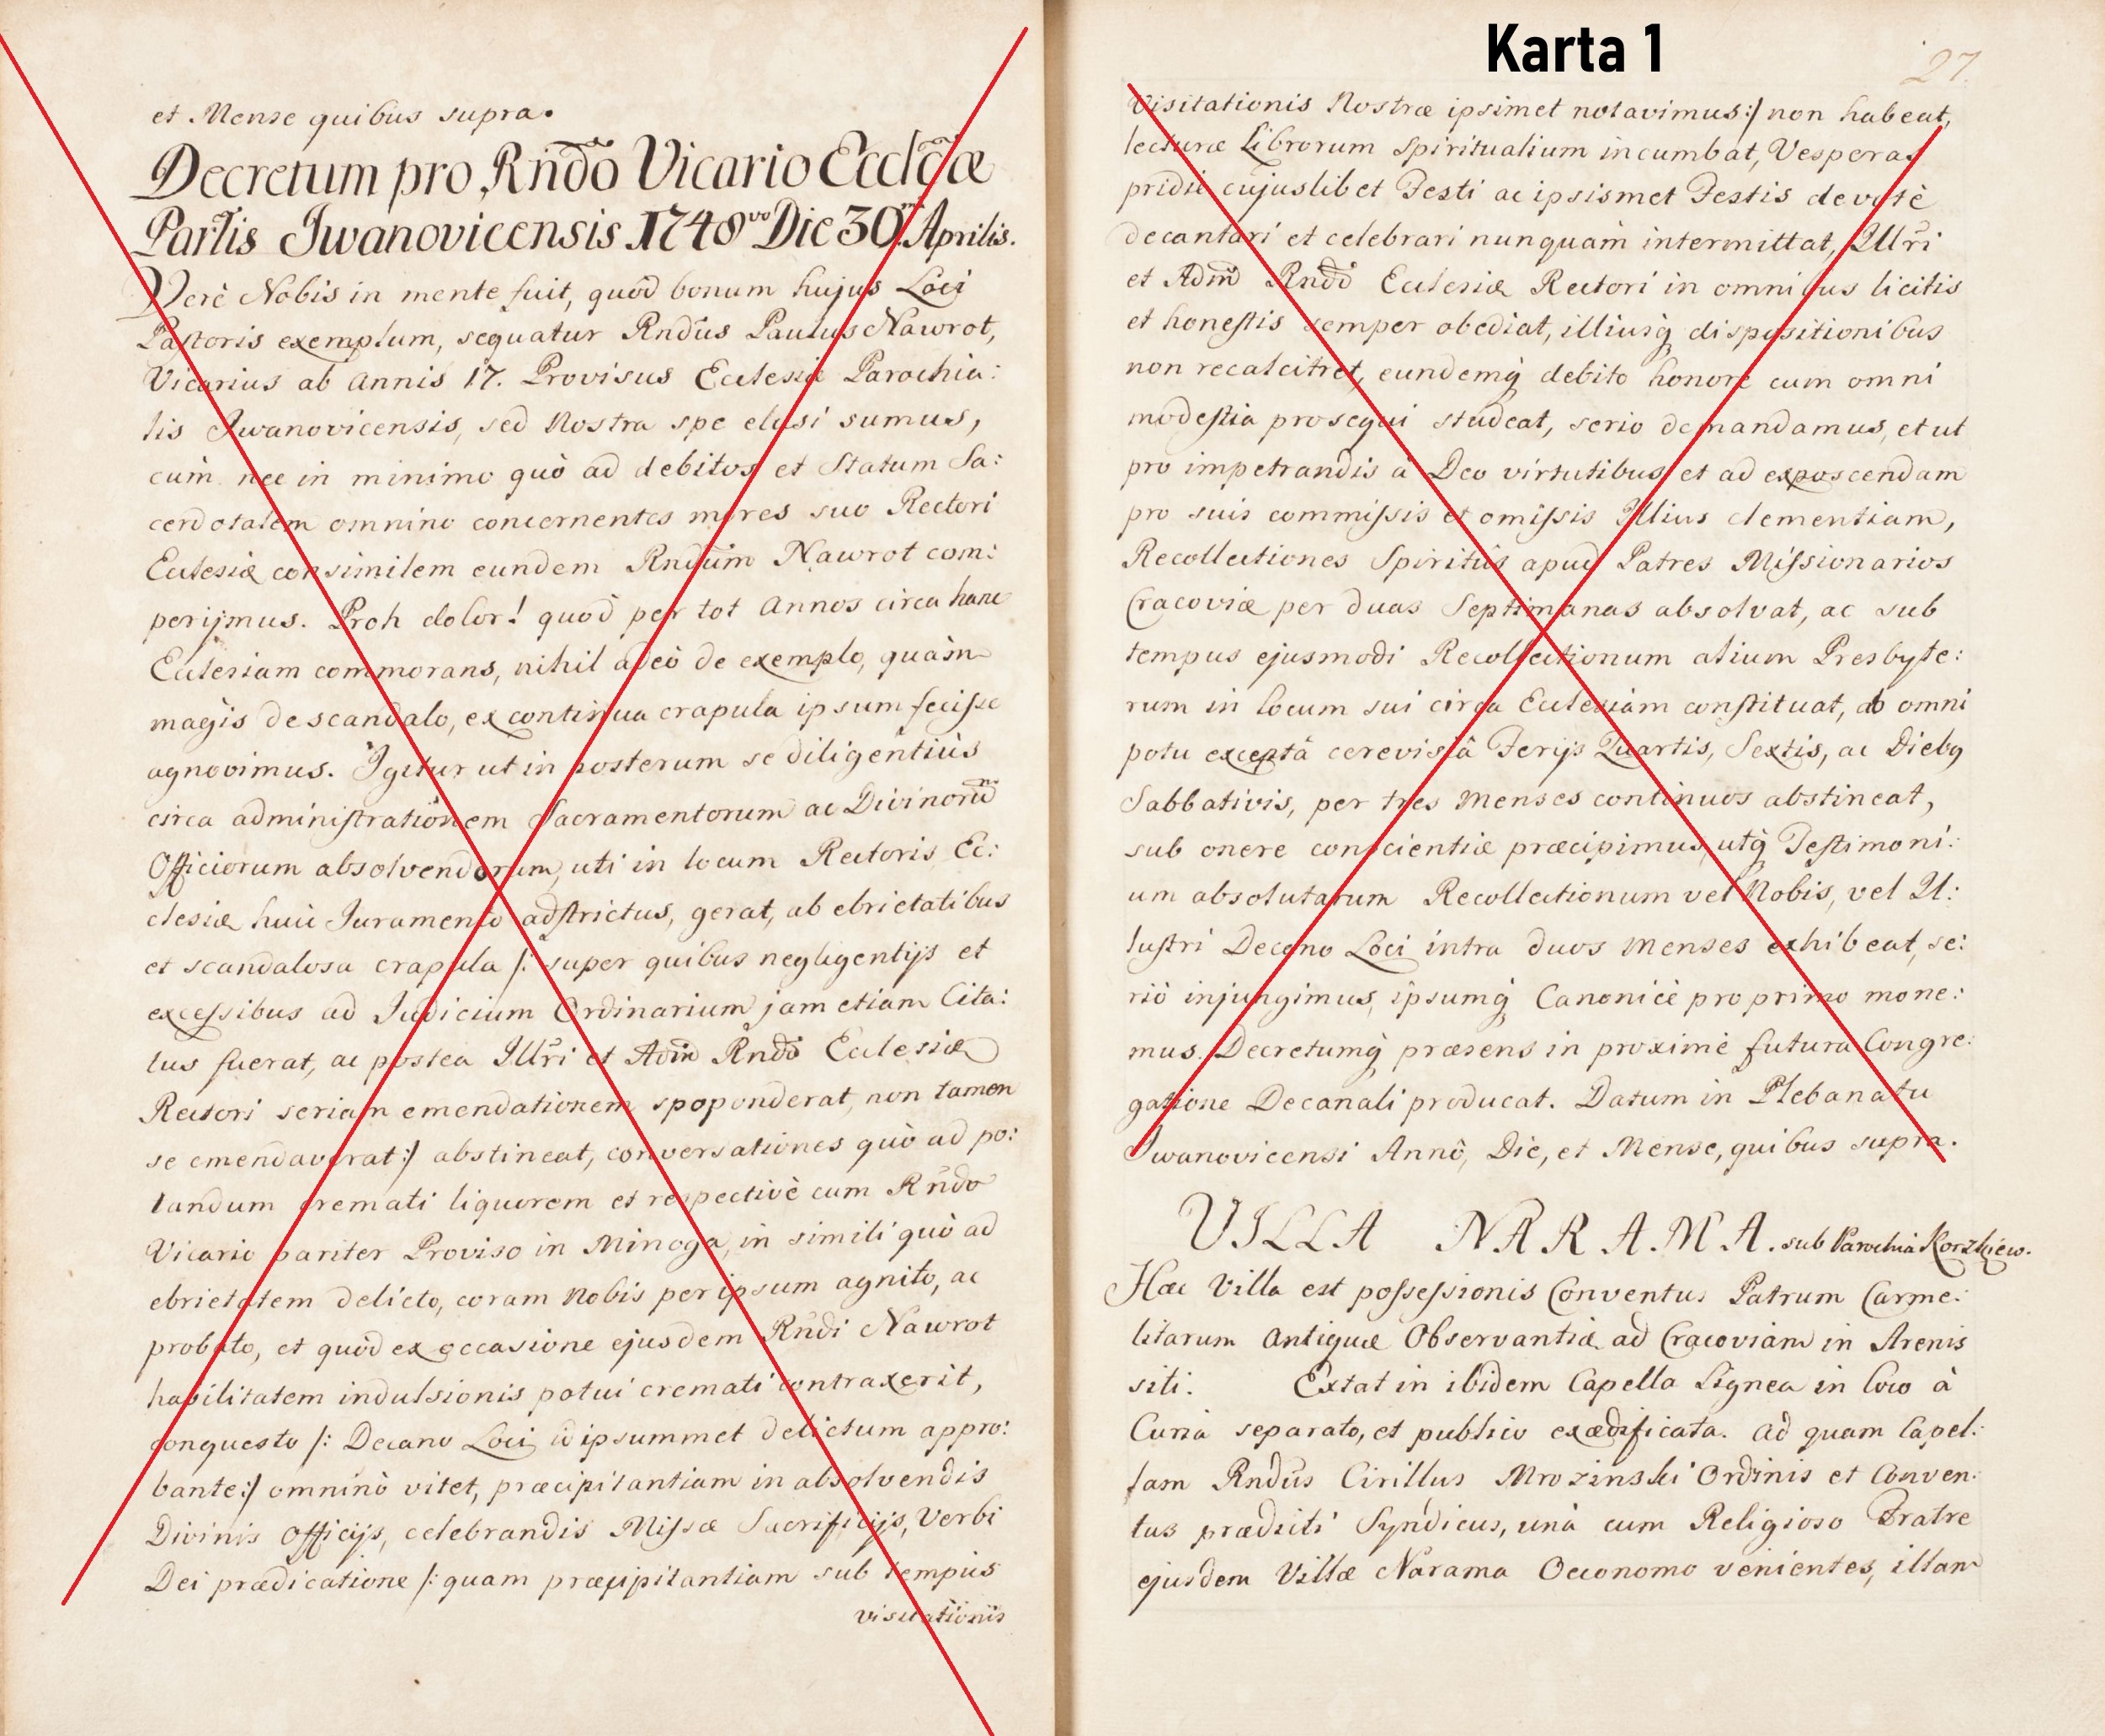 et Mense quibus supra.
Decretum pro Rndo Vicario Ecclæ
Partis Iwanovicensis 1748vo Die 30 Aprilis.
Verè Nobis in mente fuit, quòd bonum hujus Loci
Pastoris exemplum, sequatur Rndus Paulus Nawrot,
Vicarius ab annis 17. Provisus Ecclesiæ Parochia:
lis Iwanovicensis, sed Nostra spe elusi sumus,
cùm nec in minimo quò ad debitos et Statum Sa:
cerdotalem omnino concernentes mores suo Rectori
Ecclesiæ consimilem eundem Rndum Nawrot com:
perijmus. Proh dolor! quòd per tot annos circa hanc
Ecclesiam commorans, nihil adeò de exemplo, quàm
magis de scandalo, ex continua crapula ipsum fecisse
agnovimus. Igitur ut in posterum se diligentiùs
circa administrationem Sacramentorum ac Divinorũ
Officiorum absolvendorum, uti in locum Rectoris Ec:
clesiæ huic Juramento adstrictus, gerat, ab ebrietatibus
et scandalosa crapula /: super quibus negligentijs et
excessibus ad Judicium Ordinarium jam etiam Cita:
tus fuerat, ac postea Illri et Adm Rndo Ecclesiæ
Rectori seriam emendationem spoponderat, non tamen
se emendaverat:/ abstineat, conversationes quò ad po:
tandum cremati liquorem et respectivè cum Rndo
Vicario pariter Proviso in Minoga, in simili quò ad
ebrietatem delicto, coram Nobis per ipsum agnito, ac
probato, et quòd ex occasione ejusdem Rndi Nawrot
habilitatem indulsionis potui cremati contraxerit,
conquesto /: Decano Loci id ipsummet delictum appro:
bante:/ omninò vitet, præcipitantiam in absolvendis
Divinis Officijs, celebrandis Missæ Sacrificijs, Verbi
Dei prædicatione /: quam præcipitantiam sub tempus
visitationis
Karta 1
27.
Visitationis Nostræ ipsimet notavimus:/ non habeat,
lecturæ Librorum Spiritualium incumbat, Vesperas
pridie cujuslibet Festi ac ipsismet Festis devotè
decantari et celebrari nunquam intermittat, Illri
et Adm Rndo Ecclesiæ Rectori in omnibus licitis
et honestis semper obediat, illiusq dispositionibus
non recalcitret, eundemq debito honore cum omni
modestia prosequi studeat, serio demandamus, et ut
pro impetrandis à Deo virtutibus et ad exposcendam
pro suis commissis et omissis Illius clementiam,
Recollectiones Spiritûs apud Patres Missionarios
Cracoviæ per duas Septimanas absolvat, ac sub
tempus ejusmodi Recollectionum alium Presbyte:
rum in locum sui circa Ecclesiam constituat, ab omni
potu exceptâ cerevisiâ Ferijs Quartis, Sextis, ac Diebq
Sabbativis, per tres Menses continuos abstineat,
sub onere conscientiæ præcipimus, utq Testimoni:
um absolutarum Recollectionum vel Nobis, vel Il:
lustri Decano Loci intra duos Menses exhibeat, se:
riò injungimus, ipsumq Canonicè pro primo mone:
mus. Decretumq præsens in proximè futura Congre:
gatione Decanali producat. Datum in Plebanatu
Iwanovicensi Annô, Die, et Mense, quibus supra.
VILLA NARAMA. sub Parochia Korzkiew.
Hæc Villa est possessionis Conventus Patrum Carme:
litarum Antiquæ Observantiæ ad Cracoviam in Arenis
siti. Extat in ibidem Capella Lignea in loco à
Curia separato, et publico exædificata. ad quam Capel:
lam Rndus Cirillus Mrozinski Ordinis et Conven:
tus prædicti Syndicus, unà cum Religioso Fratre
ejusdem Villæ Narama Oeconomo venientes, illam